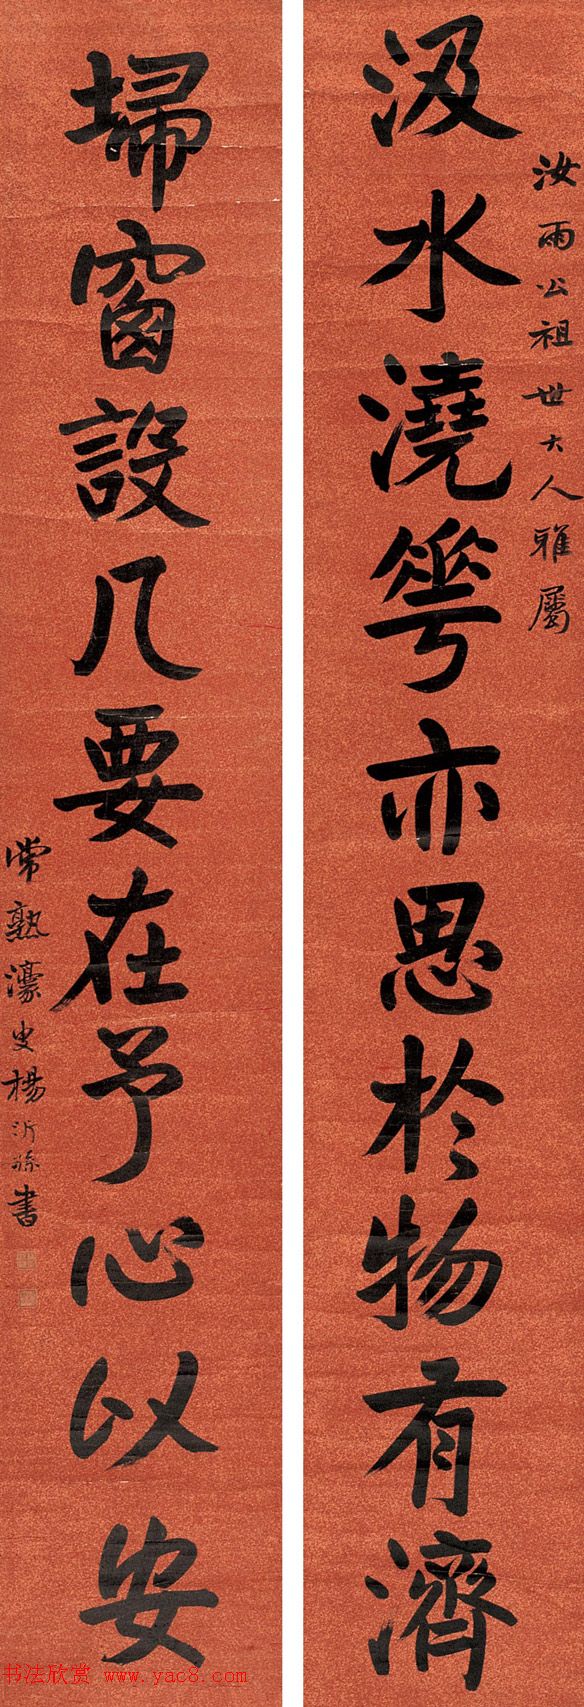 汝雨公祖世大人雅屬
汲水澆芲亦思於物有濟
掃窗設几要在予心以安
常熟濠叟楊沂孫書
书法欣赏 www.yac8.com